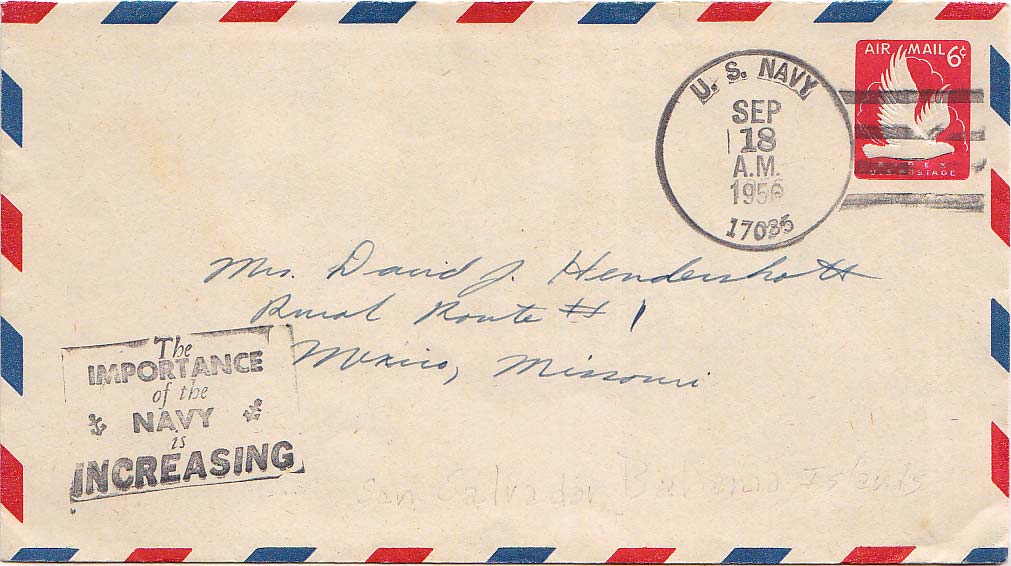 U. S. NAVY
SEP
18
A.M.
1956
17035
AIR MAIL 6¢
U.S. POSTAGE
Mrs. David J. Hendershott
Rural Route # 1
Mexico, Missouri
The
IMPORTANCE
of the
NAVY
is
INCREASING
San Salvador Islands